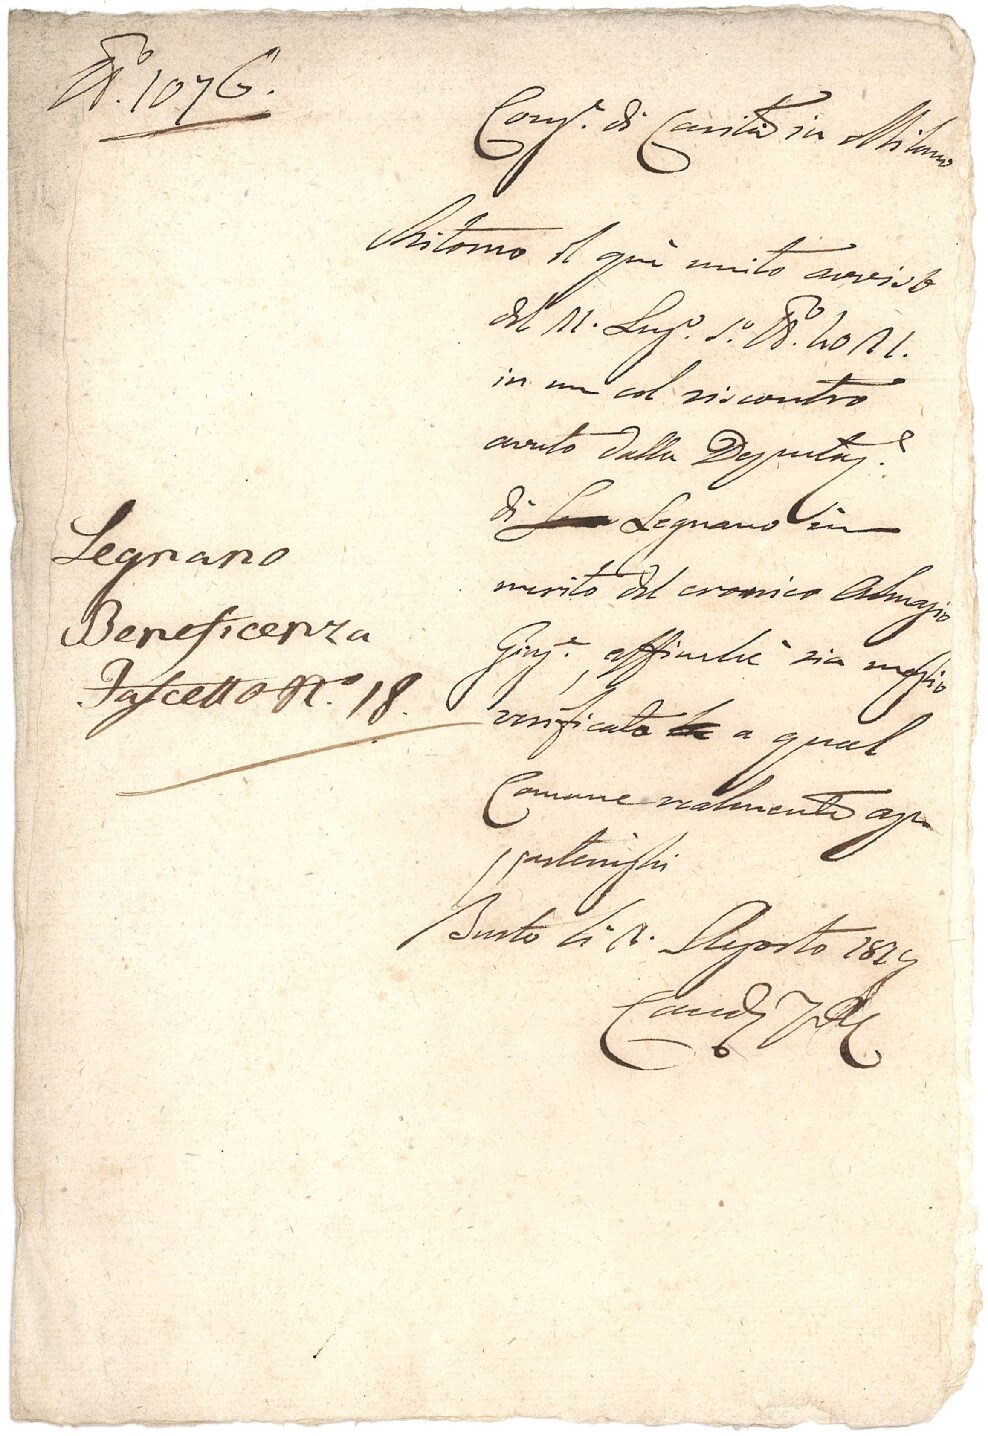 N.º 1076.
Cong.e di Carità in Milano
Ritorno il quì unito avviso
del 21. Lug.o s.o N.o 4021.
in un col riscontro
avuto dalla Deputaz.e
di Legnano in
merito del cronico Almasio
Gius.e, affinchè sia meglio
verificato a qual
Comune realmente ap-
partenghi
Busto li 2. Agosto 1829
Legnano
Beneficenza
Fascetto N.o 18.